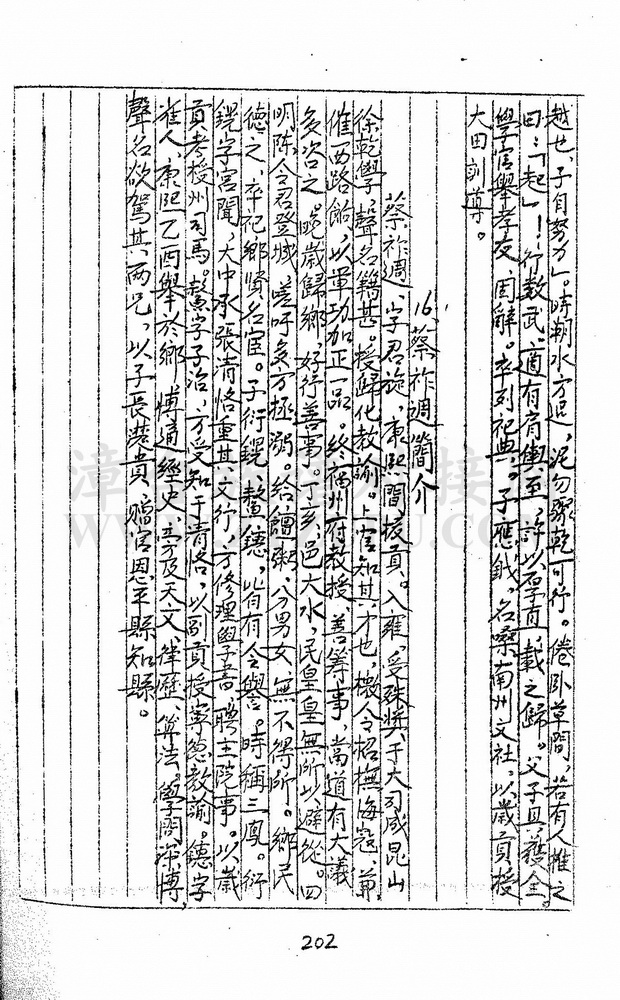 越也，子自努力」。時潮水方退，泥勿濕乾可行。倦卧草間，若有人推之
曰：「起」！行數武，適有肩輿至，許以厚直，載之歸。父子具獲全。
學官舉孝友，固辭。卒列祀典。子應鉞，名噪南州文社，以歲貢授
大田訓導。
16. 蔡祚週簡介
蔡祚週，字君旋，康熙間援貢。入雍，受殊獎于大司成昆山
徐乾學，聲名籍甚。授歸化教諭。上官知其才也，檄令招撫海寇，兼
催西路餉，以軍功加正一品。終福州府教授，善籌事，當道有大議
多咨之。晚歲歸鄉，好行善事。丁亥，邑大水，民皇皇無所以避從。四
明陳令君登城，嗟吁多方拯溺。給饘粥，分男女無不得所。鄉民
德之，卒祀鄉賢名宦。子衍鎤、鰲、鏸，皆有令譽。時稱三鳳。衍
鎤字宮聞，大中丞張清恪重其文行，方修理學書，聘主院事。以歲
貢考授州司馬。鰲字子冶，方受知于清恪，以副貢授寧德教諭。鏸字
淮人，康熙乙酉舉於鄉，博通經史，旁及天文、律歷、算法。學問深博，
聲名欲駕其兩兄，以子長澐貴，贈官恩平縣知縣。
202